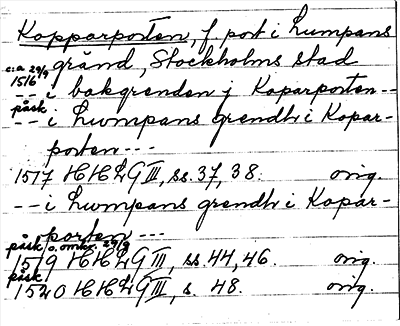 Kopparporten, f. port i Lumpans
gränd, Stockholms stad
c:a 29/9
1516 -- i bakgrenden j Koparporten --
påsk
-- i Lwmpans grendh i Kopar-
porten ---
1517 HHLG III, ss. 37, 38. orig.
-- i Lwmpans grendh i Kopar-
porten ---
påsk o. omkr. 29/9
1519 HHLG III, ss. 44, 46. orig.
påsk
1520 HHLG III, s. 48. orig.